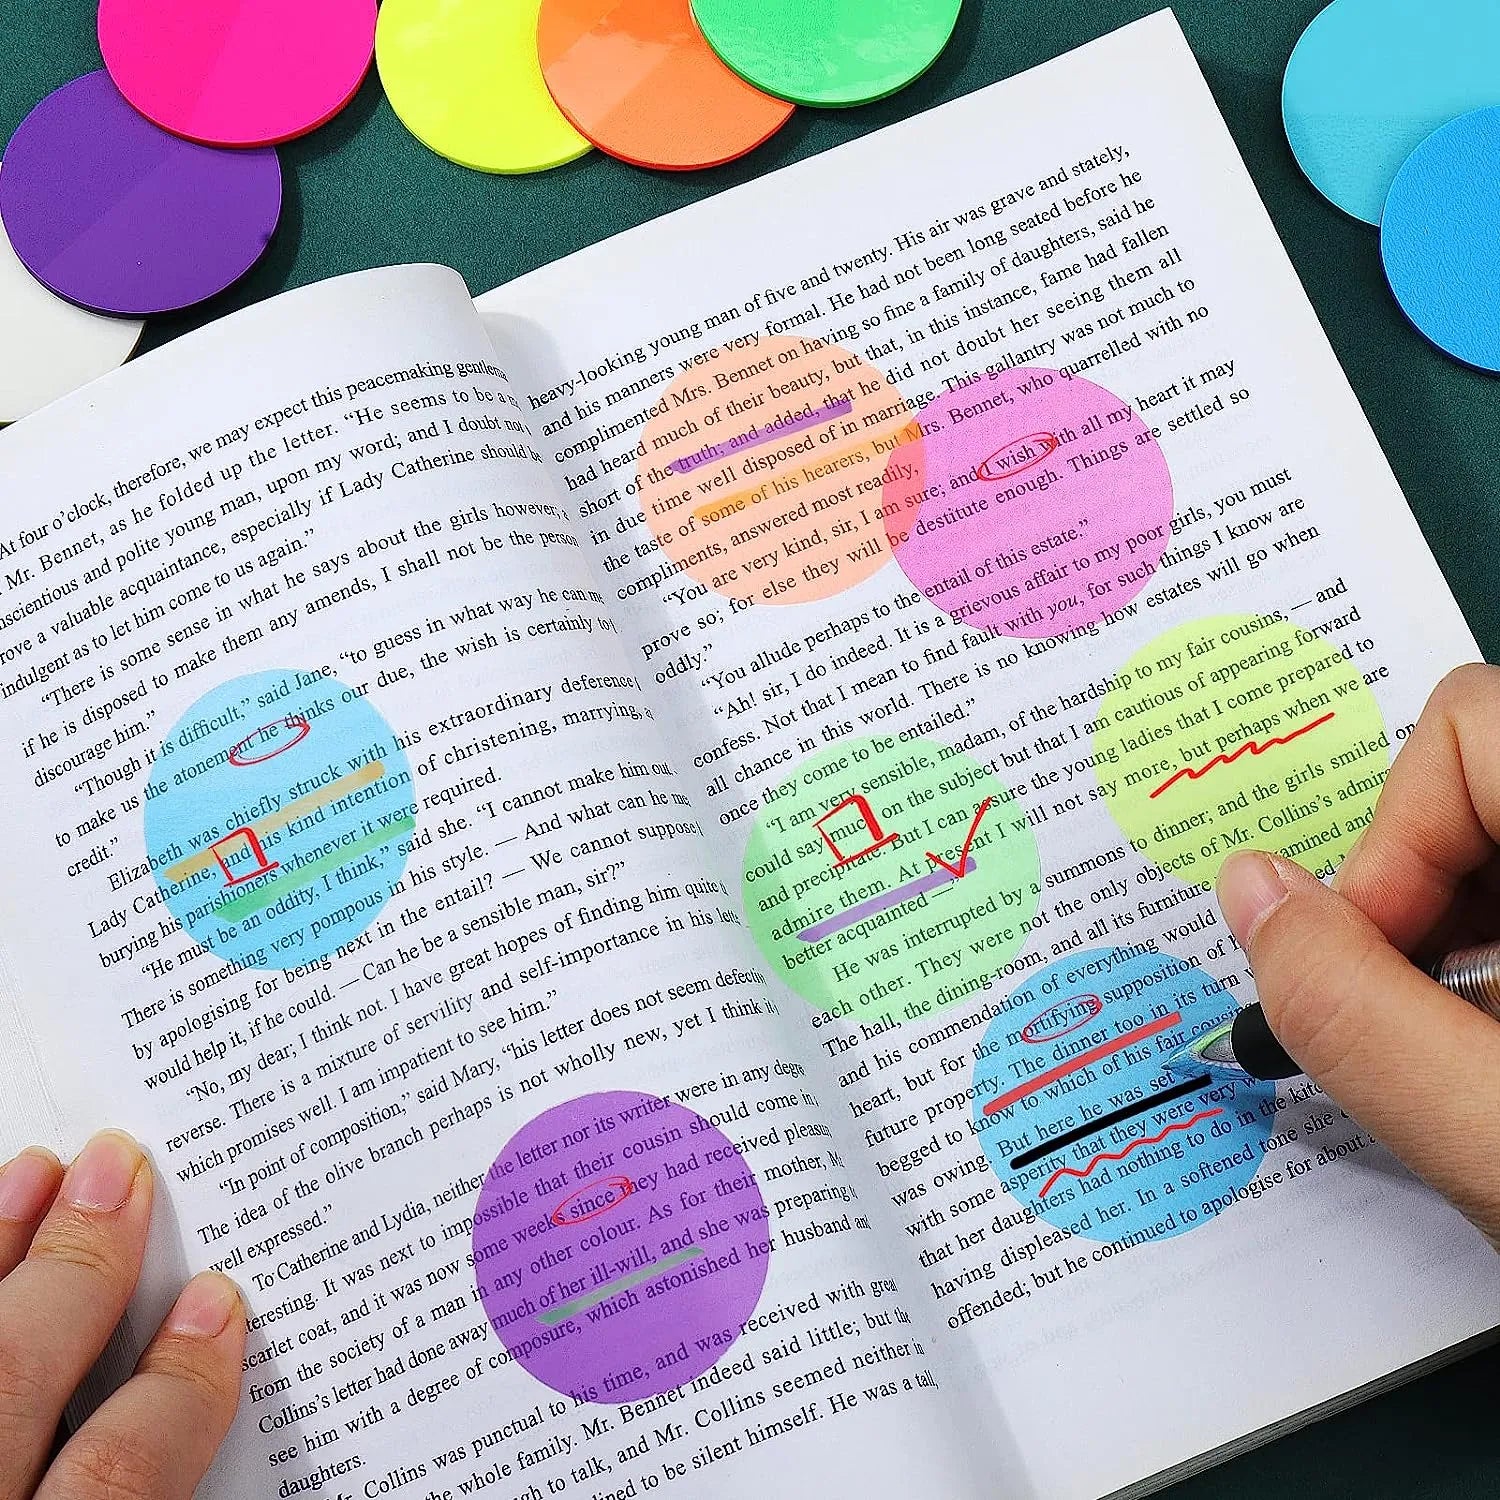 At four o’clock, therefore, we may expect this peacemaking
Mr. Bennet, as he folded up the letter. “He seems to be a
and polite young man, upon my word; and I doubt not
a valuable acquaintance, especially if Lady Catherine should be
indulgent as to let him come to us again.”
“There is some sense in what he says about the girls however,
if he is disposed to make them any amends, I shall not be the person
discourage him.”
“Though it is difficult,” said Jane, “to guess in what way he can
to make us the atonement he thinks our due, the wish is certainly to
credit.”
Elizabeth was chiefly struck with his extraordinary deference
Lady Catherine, and his kind intention of christening, marrying, a
burying his parishioners whenever it were required.
“He must be an oddity, I think,” said she. “I cannot make him out.
There is something very pompous in his style. — And what can he
by apologising for being next in the entail? — We cannot suppose
would help it, if he could. — Can he be a sensible man, sir?”
“No, my dear; I think not. I have great hopes of finding him quite
reverse. There is a mixture of servility and self-importance in his
which promises well. I am impatient to see him.”
“In point of composition,” said Mary, “his letter does not seem
The idea of the olive branch perhaps is not wholly new, yet I think it
well expressed.”
To Catherine and Lydia, neither the letter nor its writer were in any
teresting. It was next to impossible that their cousin should come in
scarlet coat, and it was now some weeks since they had received
from the society of a man in any other colour. As for their mother,
Collins’s letter had done away much of her ill-will, and she was preparing
see him with a degree of composure, which astonished her husband
daughters.
Mr. Collins was punctual to his time, and was received with
the whole family. Mr. Bennet indeed said little; but
to talk, and Mr. Collins seemed neither in
to be silent himself. He was a tall,
heavy-looking young man of five and twenty. His air was grave and stately,
and his manners were very formal. He had not been long seated before he
complimented Mrs. Bennet on having so fine a family of daughters, said he
had heard much of their beauty, but that, in this instance, fame had fallen
short of the truth; and added, that he did not doubt her seeing them all
in due time well disposed of in marriage. This gallantry was not much to
the taste of some of his hearers, but Mrs. Bennet, who quarrelled with no
compliments, answered most readily,
“You are very kind, sir, I am sure; and I wish with all my heart it may
prove so; for else they will be destitute enough. Things are settled so
oddly.”
“You allude perhaps to the entail of this estate.”
“Ah! sir, I do indeed. It is a grievous affair to my poor girls, you must
confess. Not that I mean to find fault with you, for such things I know are
all chance in this world. There is no knowing how estates will go when
once they come to be entailed.”
“I am very sensible, madam, of the hardship to my fair cousins, — and
could say much on the subject but that I am cautious of appearing forward
and precipitate. But I can assure the young ladies that I come prepared to
admire them. At present I will not say more, but perhaps when we are
better acquainted —,”
He was interrupted by a summons to dinner; and the girls smiled on
each other. They were not the only objects of Mr. Collins’s
The hall, the dining-room, and all its furniture
and his commendation of everything would
heart, but for the mortifying supposition of
future property. The dinner too in its turn
begged to know to which of his fair
was owing. But here he was set
with some asperity that they were very
that her daughters had nothing to do in the
having displeased her. In a softened tone she
offended; but he continued to apologise for about